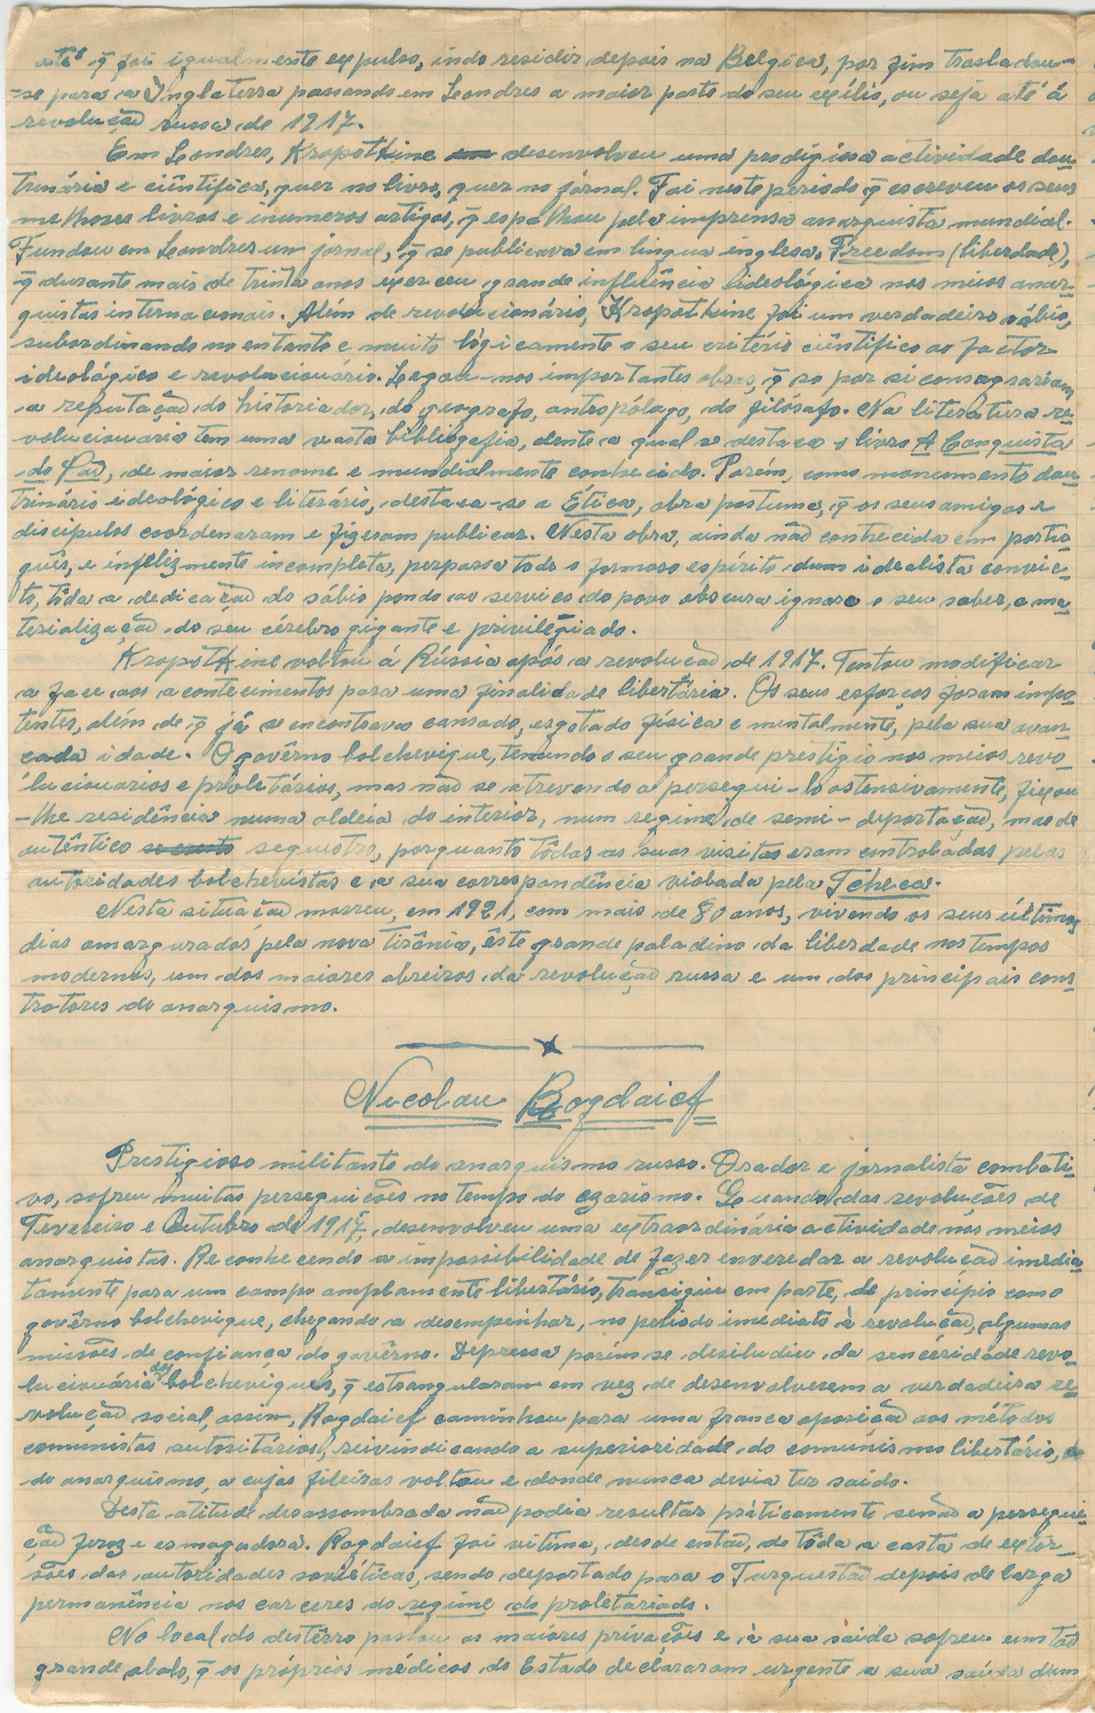 até q̃ foi igualmente expulso, indo residir depois na Belgica, por fim trasladou-
-se para a Inglaterra passando em Leondres a maior parte do seu exílio, ou seja até á
revolução russa de 1917.
Em Leondres, Kropotkine desenvolveu uma prodigiosa actividade dou-
trinária e ciêntifica, quer no livro, quer no jornal. Foi neste periodo q̃ escreveu os seus
melhores livros e inumeros artigos, q̃ espalhou pela imprensa anarquista mundial.
Fundou em Leondres um jornal, q̃ se publicava em lingua inglesa, Freedom (liberdade),
q̃ durante mais de trinta anos exerceu grande influência ideológica nos meios anar-
quistas internacionais. Além de revolucionário, Kropotkine foi um verdadeiro sábio,
subordinando no entanto e muito lògicamente o seu critério ciêntifico ao factor
ideológico e revolucionario. Legou-nos importantes obras, q̃ so por si consagrariam
a reputação do historiador, do geografo, antropólogo, do filósafo. Na literatura re-
volucionaria tem uma vasta bibliografia, dentre a qual se destaca o livro A Conquista
do Pão, de maior renome e mundialmente conhecido. Porém, como monumento dou-
trinário ideológico e literário, destaca-se a Ética, obra postuma, q̃ os seus amigos e
discipulos coordenaram e fizeram publicar. Nesta obra, ainda não conhecida em portu-
guês, e infelizmente incompleta, perpassa todo o formoso espírito dum idealista convic-
to, tôda a dedicação do sábio pondo ao serviço do povo obscuro ignaro o seu saber, a ma-
terialização do seu cérebro gigante e privilégiado.
Kropotkine voltou á Rússia após a revolução de 1917. Tentou modificar
a face aos acontecimentos para uma finalidade libertária. Os seus esforços foram impo-
tentes, além de q̃ já se encontrava cansado, esgotado física e mentalmente, pela sua avan-
çada idade. O govêrno bolchevique, temendo o seu grande prestígio nos meios revo-
lucionarios e proletários, mas não se atrevendo a persegui-lo ostensivamente, fixou
-lhe residência numa aldeia do interior, num regime de semi-deportação, mas de
autêntico sequestro, porquanto tôdas as suas visitas eram controladas pelas
autoridades bolchevistas e a sua correspondência violada pela Tcheca.
Nesta situação morreu, em 1921, com mais de 80 anos, vivendo os seus últimos
dias amargurados pela nova tirânia, êste grande paladino da liberdade nos tempos
modernos, um dos maiores obreiros da revolução russa e um dos principais cons-
trotores do anarquismo.
Nicolau Rogdaief
Prestigioso militante do anarquismo russo. Orador e jornalista combati-
vo, sofreu muitas perseguições no tempo do czarismo. Quando das revoluções de
Fevereiro e Outubro de 1917, desenvolveu uma extraordinária actividade nos meios
anarquistas. Reconhecendo a impossibilidade de fazer enveredar a revolução imedia-
tamente para um campo amplamente libertário, transigiu em parte, de principio com o
govêrno bolchevique, chegando a desempenhar, no periodo imediato à revolução, algumas
missões de confiança do govêrno. Depressa porém se desiludiu da sinceridade revo-
lucionária dos bolcheviques, q̃ estrangularam em vez de desenvolverem a verdadeira re-
volução social, assim, Rogdaief caminhou para uma franca oposição aos métodos
comunistas autoritários, reivindicando a superioridade do comunismo libertário,
do anarquismo, a cujas fileiras voltou e donde nunca devia ter saído.
Desta atitude desassombrada não podia resultar práticamente senão a persegui-
ção feroz e esmagadora. Rogdaief foi vitima, desde então, de tôda a casta de extor-
sões das autoridades soviéticas, sendo deportado para o Turquestão depois de larga
permanência nos carceres do regime do proletariado.
No local do destêrro passou as maiores privações e à sua saida sofreu um tão
grande abalo, q̃ os próprios médicos do Estado declararam urgente a sua saída dum